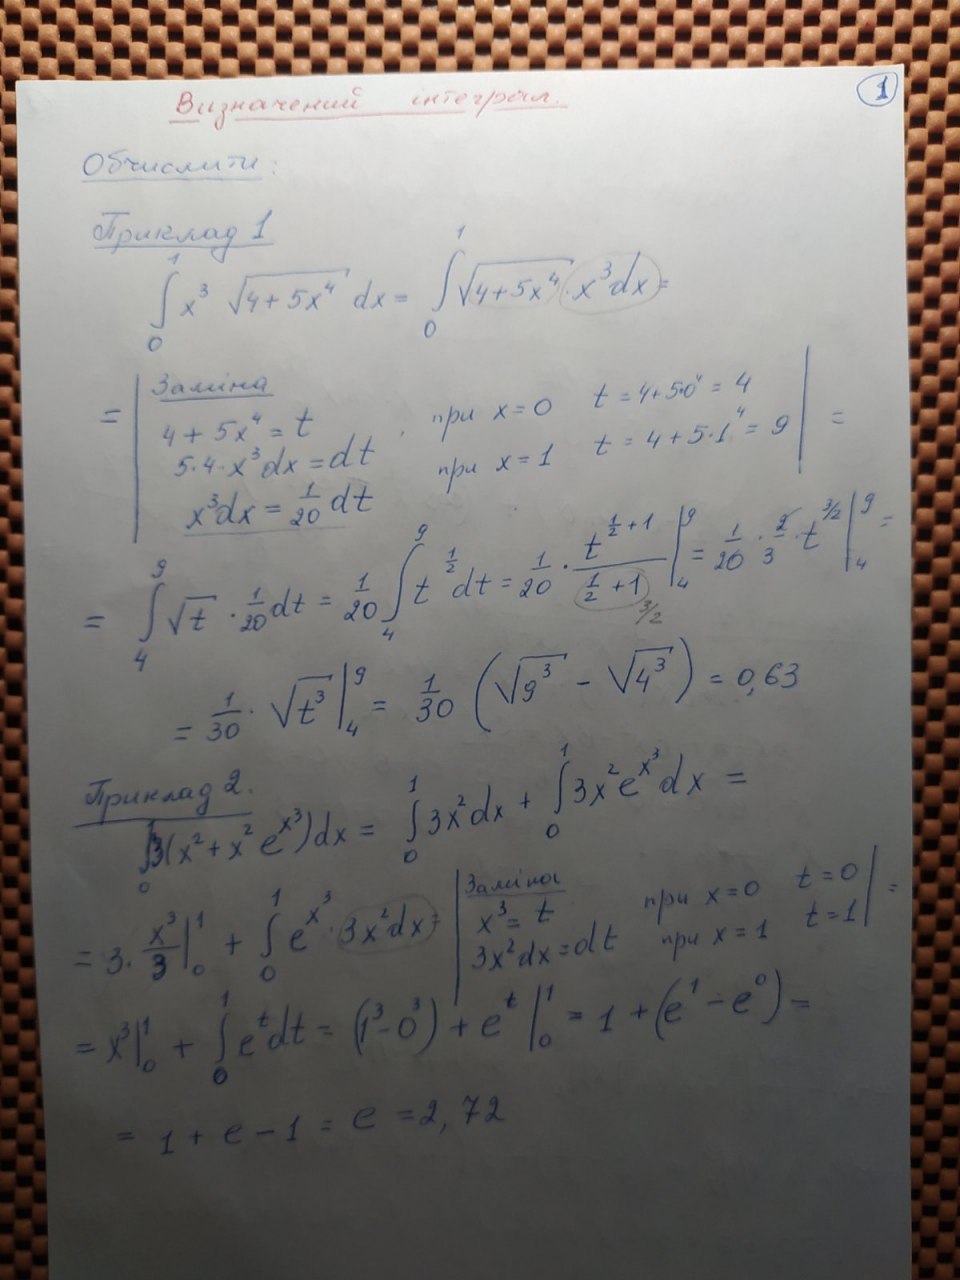 Визначений інтеграл.
1
Обчислити:
Приклад 1
∫₀¹ x³ √(4+5x⁴) dx = ∫₀¹ √(4+5x⁴) · x³dx =
= | Заміна
4 + 5x⁴ = t , при x=0 t = 4+5·0⁴ = 4
5·4·x³dx = dt при x=1 t = 4+5·1⁴ = 9 | =
x³dx = 1/20 dt
= ∫₄⁹ √t · 1/20 dt = 1/20 ∫₄⁹ t^(1/2) dt = 1/20 · t^(1/2+1)/(1/2+1) |₄⁹ = 1/20 · 2/3 · t^(3/2) |₄⁹ =
3/2
= 1/30 · √t³ |₄⁹ = 1/30 (√9³ - √4³) = 0,63
Приклад 2.
∫₀¹ 3(x² + x² e^(x³))dx = ∫₀¹ 3x²dx + ∫₀¹ 3x²e^(x³)dx =
= 3 · x³/3 |₀¹ + ∫₀¹ e^(x³) · 3x²dx = | Заміна
x³ = t при x=0 t=0
3x²dx = dt при x=1 t=1 | =
= x³|₀¹ + ∫₀¹ e^t dt = (1³-0³) + e^t |₀¹ = 1 + (e¹ - e⁰) =
= 1 + e - 1 = e = 2,72